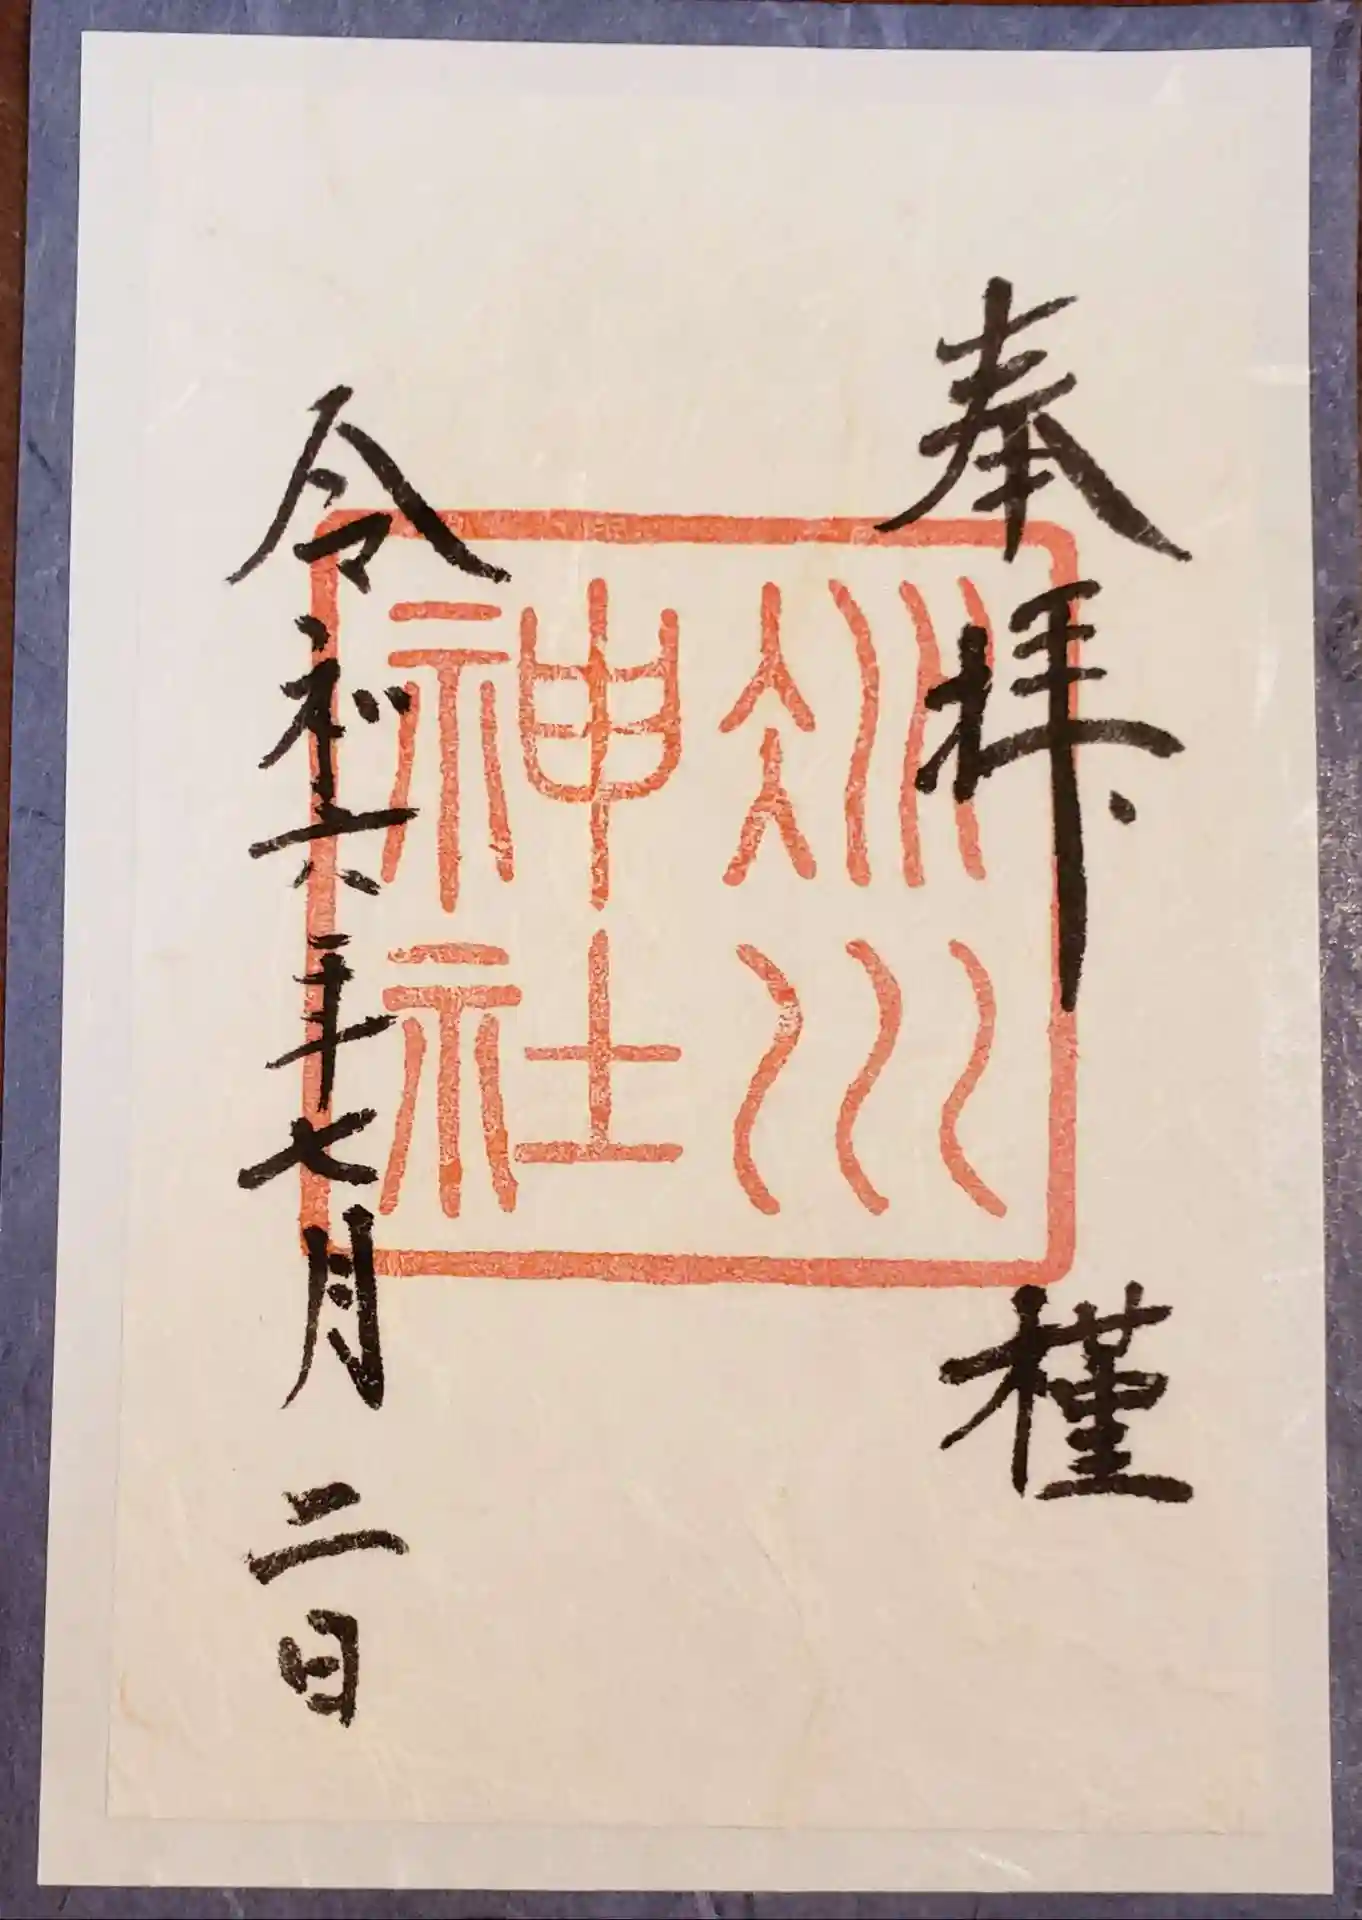 奉拝
槿
冰川
神社
令和六年七月二日